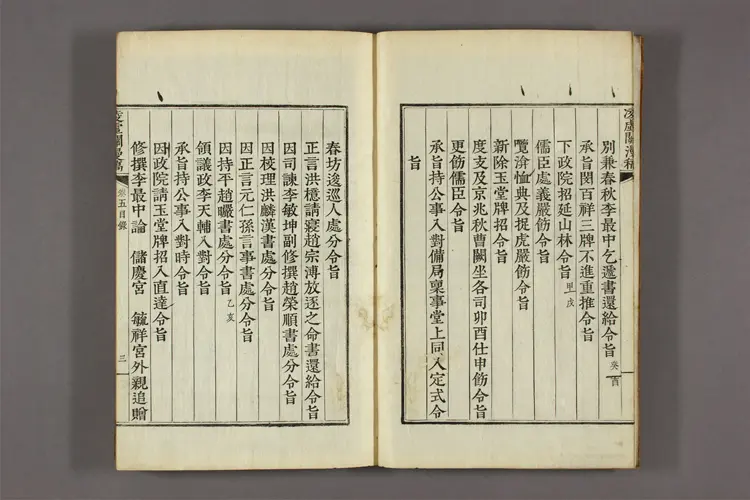 別兼春秋李最中乞遞書還給令旨 癸酉
承旨閔百祥三牌不進重推令旨
下政院招延山林令旨 甲戌
儒臣處義嚴飭令旨
覽渰恤典及捉虎嚴飭令旨
新除玉堂牌招令旨
度支及京兆秋曹闕坐各司卯酉仕申飭令旨
更飭儒臣令旨
承旨持公事入對備局稟事堂上同入定式令
旨
春坊逡巡人處分令旨
正言洪檍請寢趙宗溥放逐之命書還給令旨
因司諫李敏坤副修撰趙榮順書處分令旨
因校理洪麟漢書處分令旨
因正言元仁孫言事書處分令旨
因持平趙㬓書處分令旨 乙亥
領議政李天輔入對令旨
承旨持公事入對時令旨
因政院請玉堂牌招入直達令旨
修撰李最中論 儲慶宮 毓祥宮外親追贈
卷五目錄
三